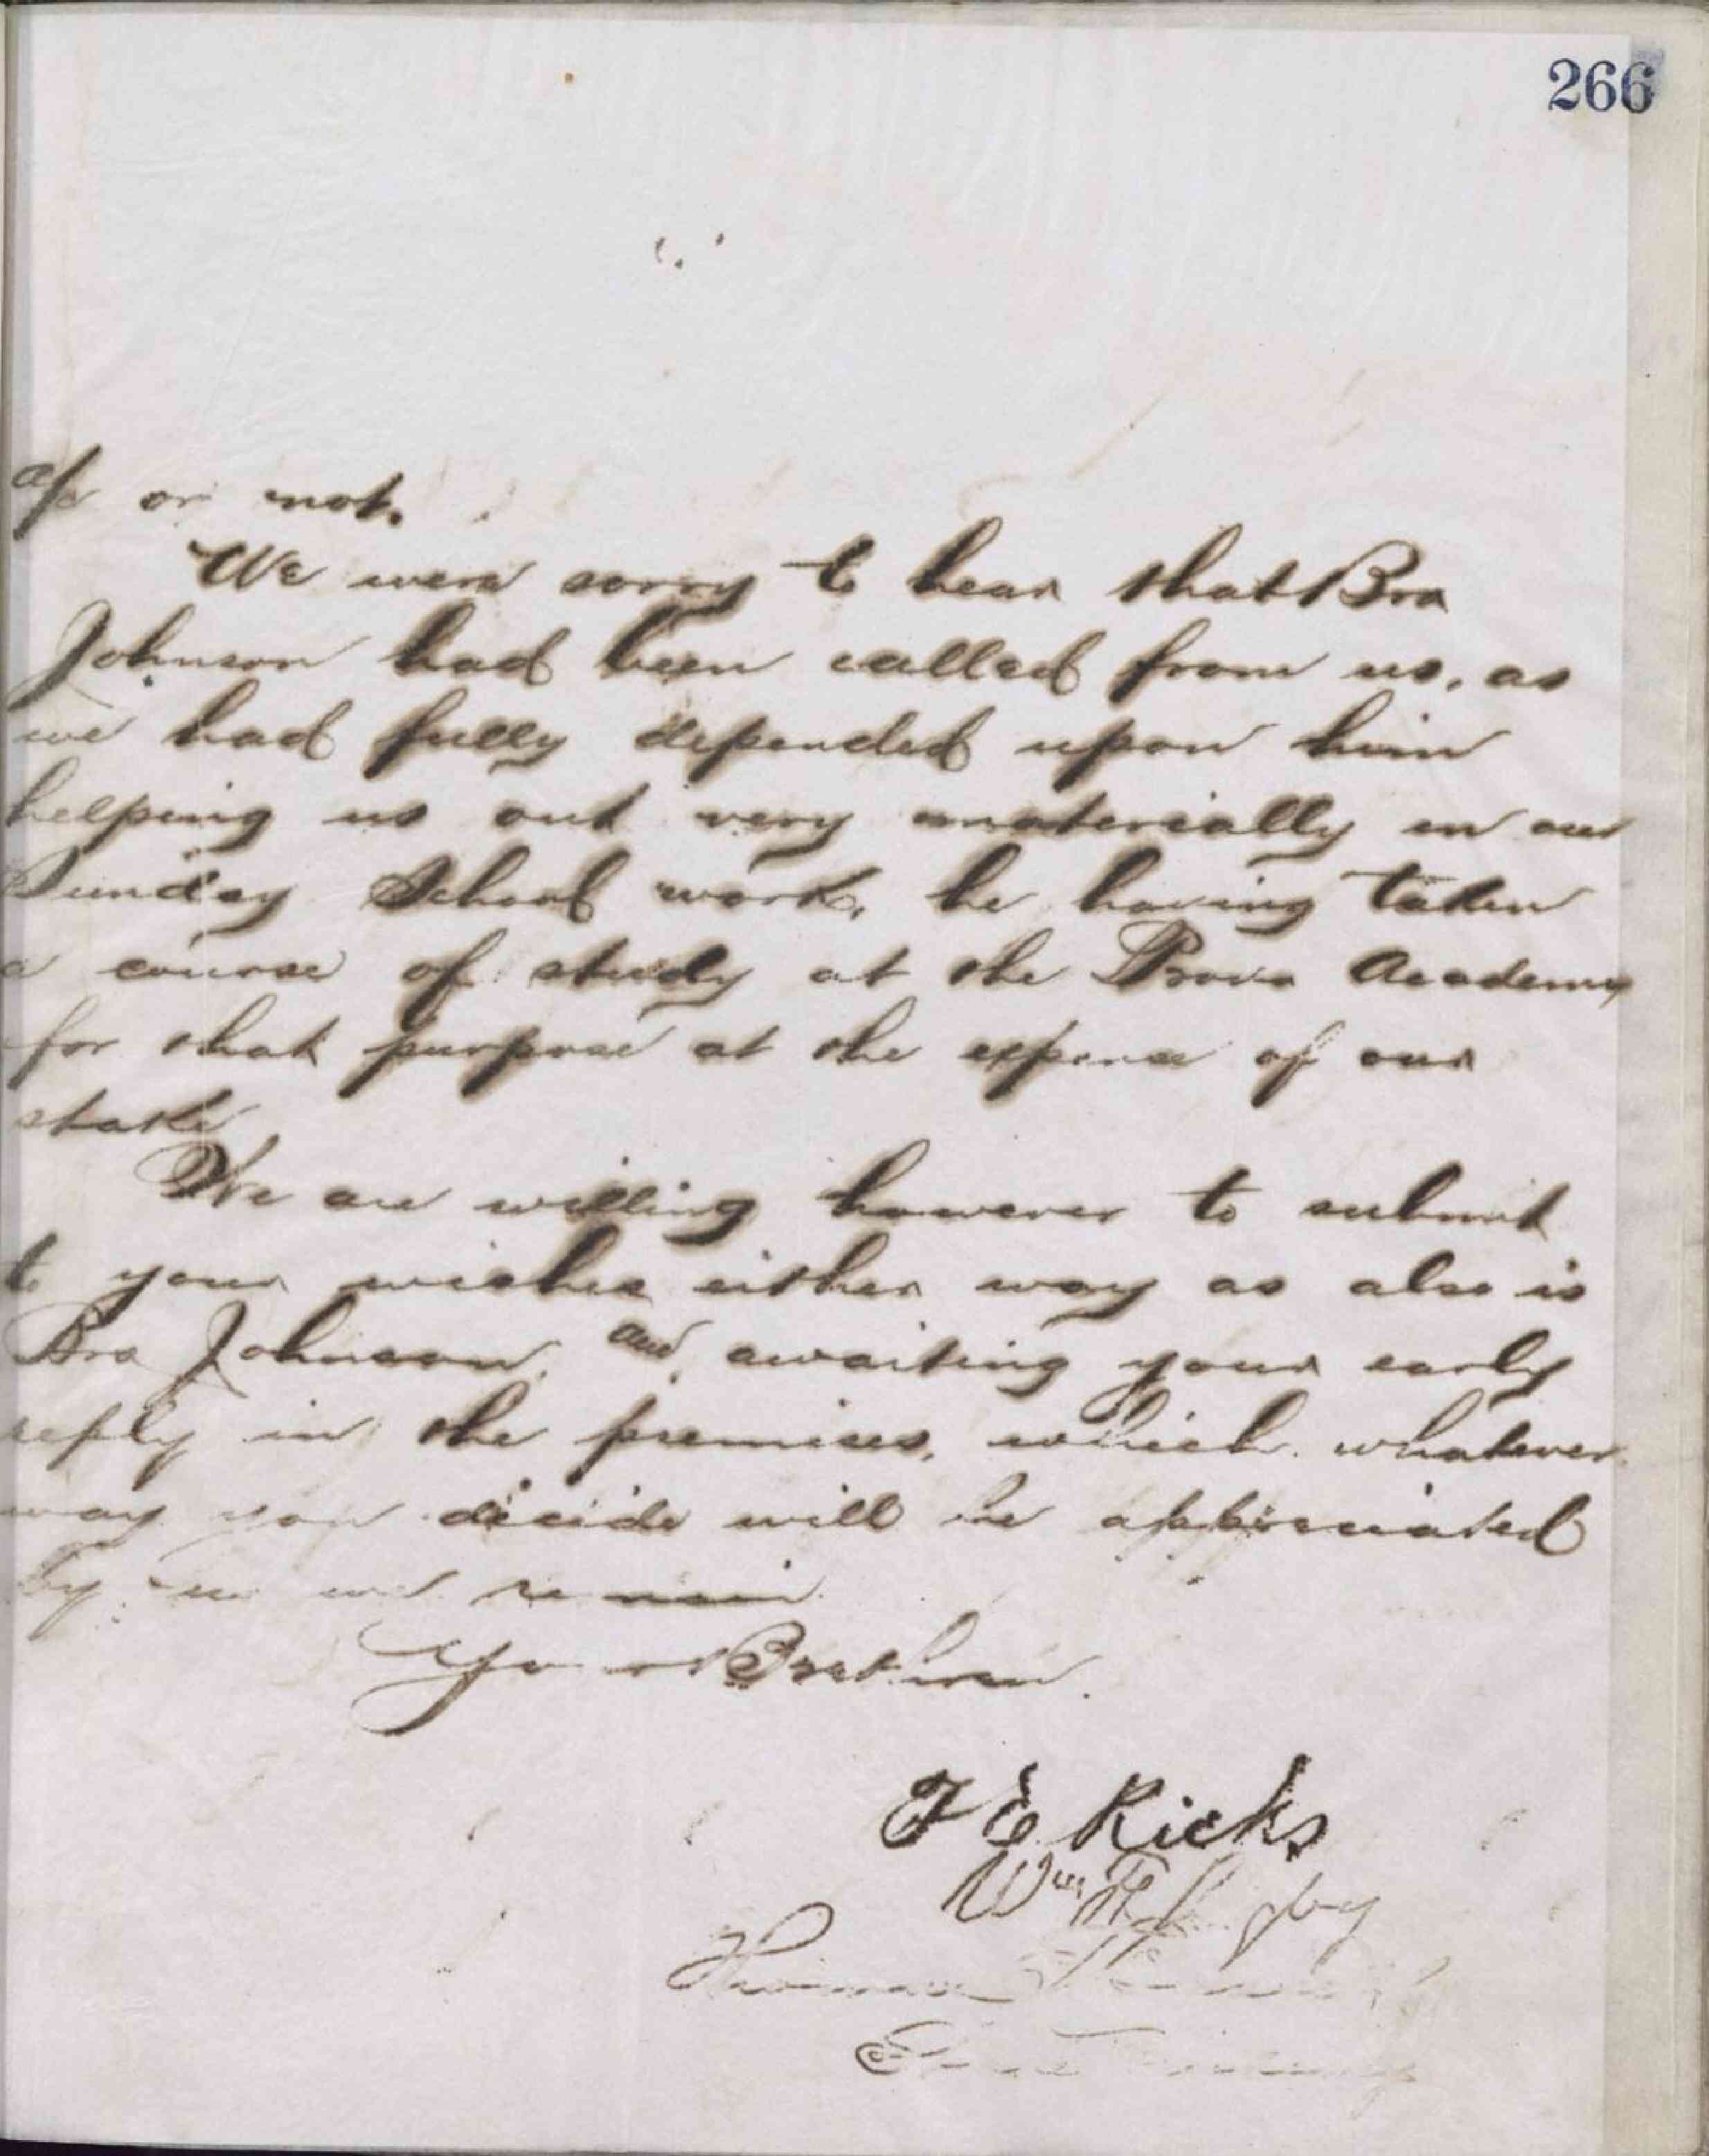 266
a/c or not.
We were sorry to hear that Bro
Johnson had been called from us, as
we had fully depended upon him
helping us out very materially in our
Sunday School work, he having taken
a course of study at the Provo Academy
for that purpose at the expense of our
stake
We are willing however to submit
to your wishes either way as also is
Bro Johnson, and awaiting your early
reply in the premises, which whatever
way you decide will be appreciated
by us we remain
Your Brethren.
T E Ricks
Wm